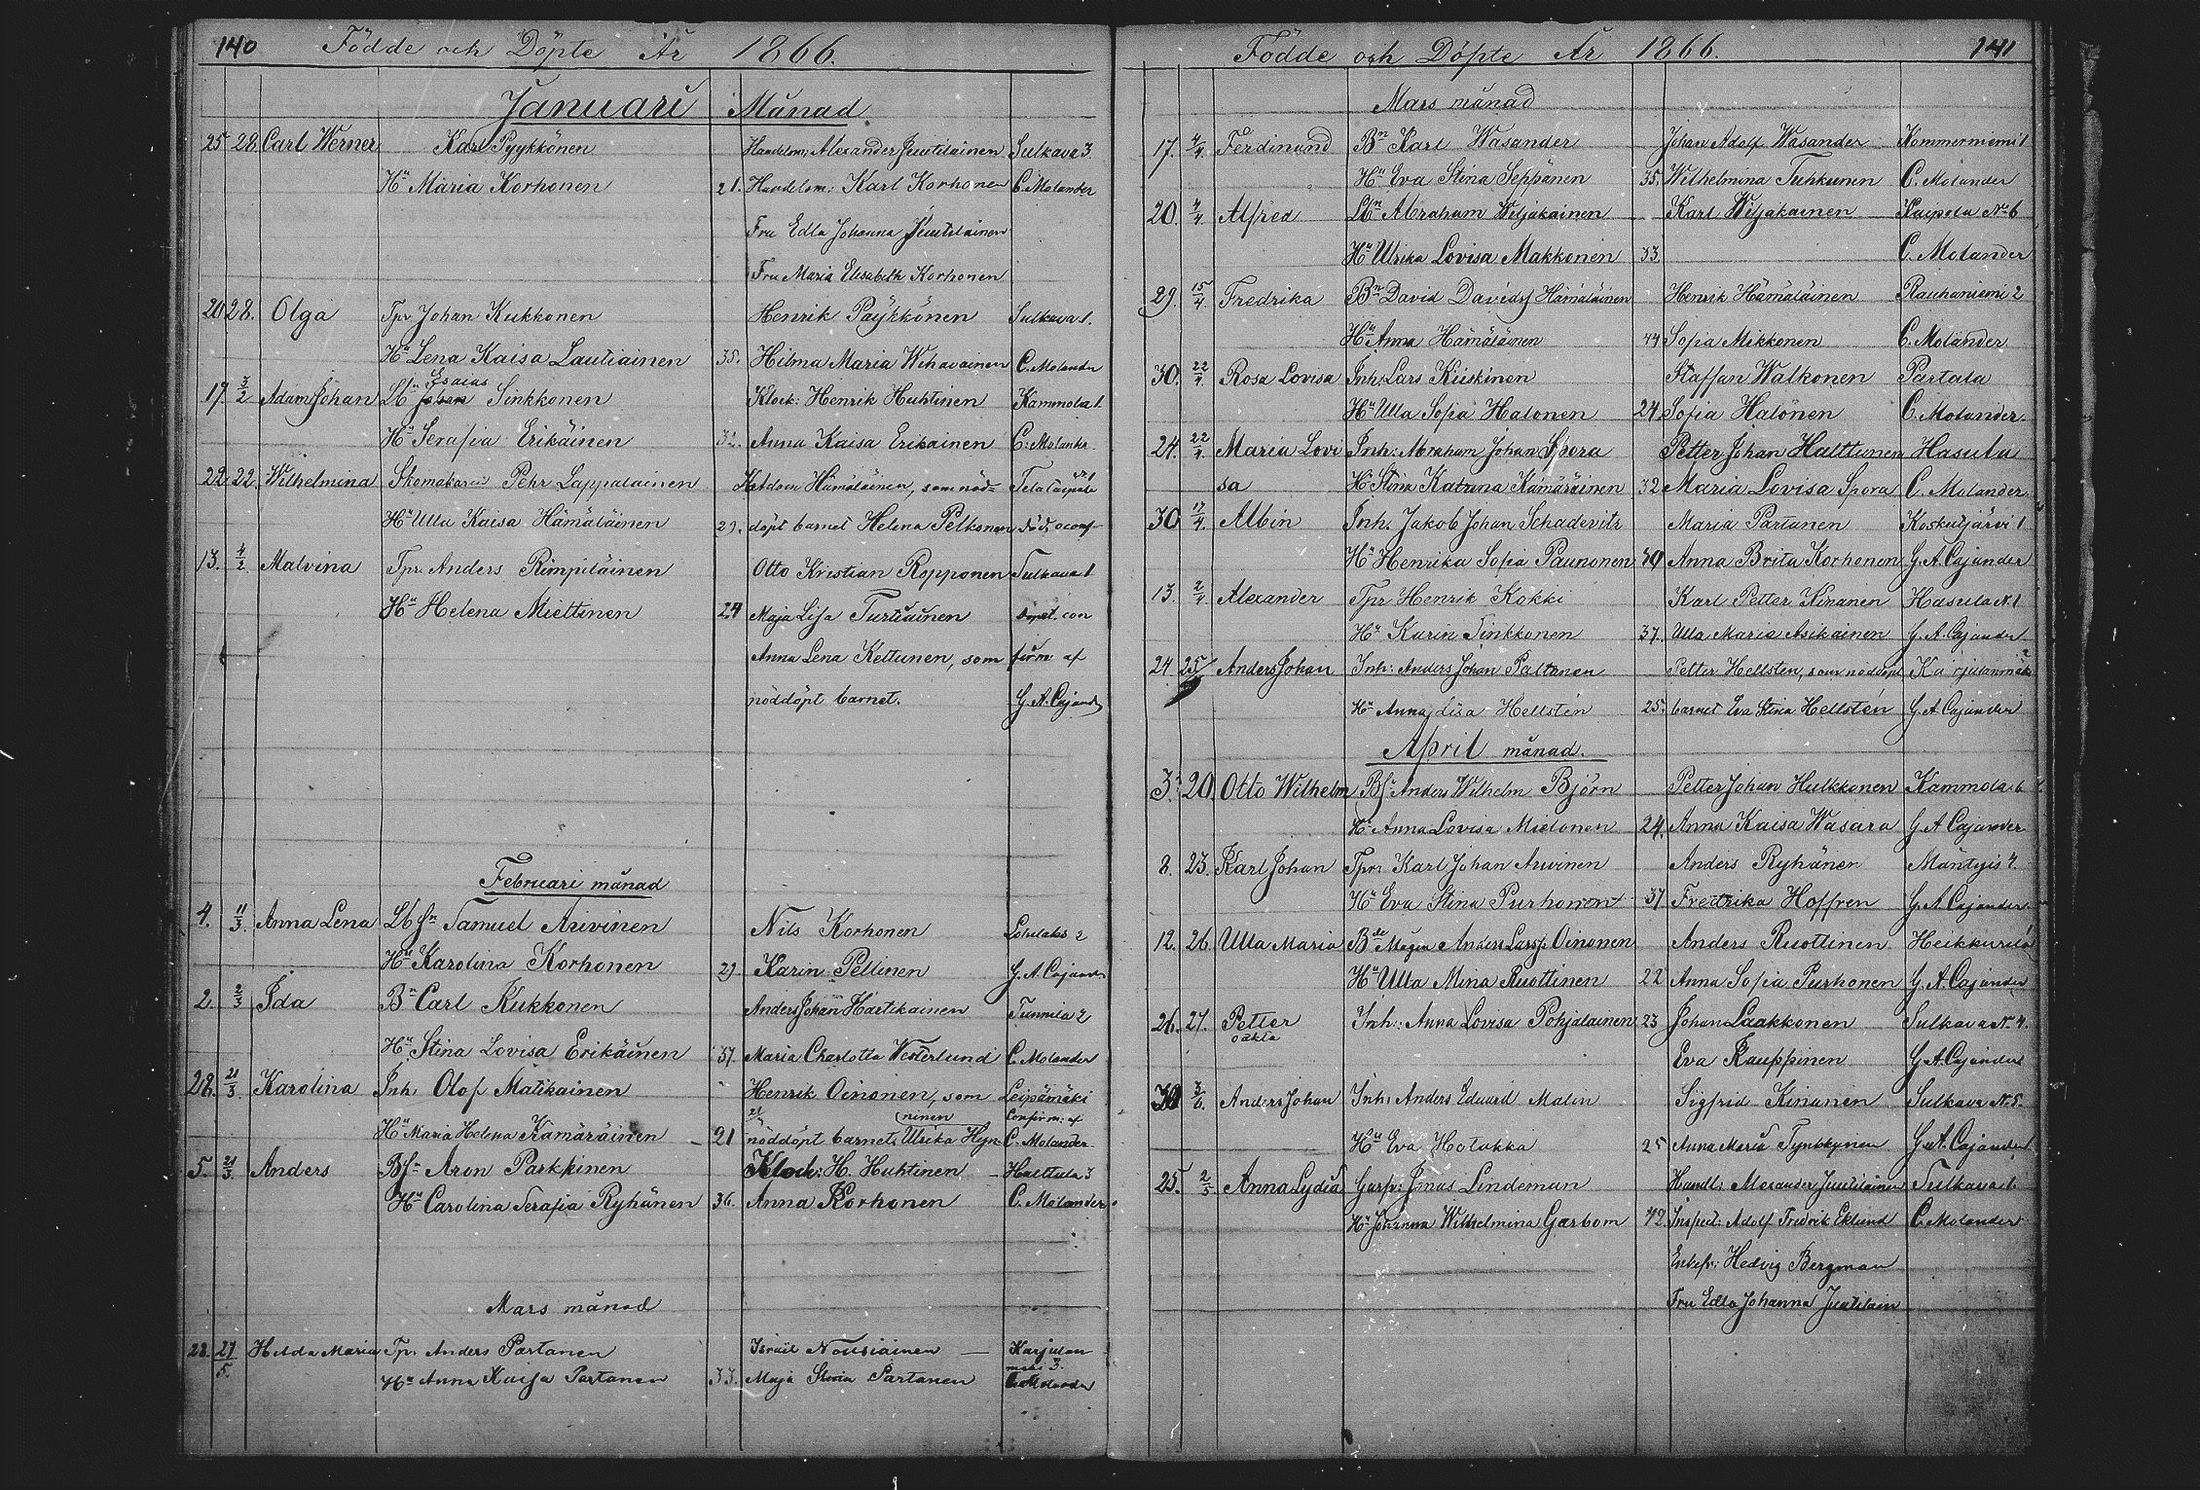 140 Födde och Döpte År 1866.
Januari Månad
25 28 Carl Werner Karl Pyykkönen Handelsm: Alexander Juutilainen Sulkava 3.
Hu Maria Korhonen 21. Handelsm: Karl Korhonen C. Molander
Fru Edla Johanna Juutilainen
Fru Maria Elisabeth Korhonen
20 28. Olga Tpr Johan Kukkonen Henrik Päykkönen Sulkava 1.
Hu Lena Kaisa Lautiainen 35. Hilma Maria Wihavainen C. Molander
Esaias
17. 3/2 Adam Johan Lbn Johan Sinkkonen Klock: Henrik Huhtinen Kammola 1.
Hu Serafia Erikäinen 32. Anna Kaisa Erikainen C. Molander
22. 22. Wilhelmina Skomakaren Pehr Lappalainen Hämäläinen, som nöd=
Hu Ulla Kaisa Hämäläinen 29. döpt barnet Helena Pelkonen
13. 4/2 Malvina Tpr. Anders Rimpiläinen Otto Kristian Ropponen Sulkava 1
Hu Helena Miettinen 24 Maja Lisa Turtiainen con
Anna Lena Kettunen, som firm af
nöddöpt barnet. G. A. Cajand
Februari månad
4. 11/3 Anna Lena Lbfn Samuel Arvinen Nils Korhonen 2
Hu Karolina Korhonen 29. Karin Pellinen G. A. Cajand
2. 2/3 Ida Bn Carl Kukkonen Anders Johan Hartikainen Tunnila 2
Hu Stina Lovisa Erikäinen 37. Maria Charlotta Westerlund C. Molander
28. 21/3 Karolina Inh. Olof Matikainen Henrik Oinonen, som Leipämäki
ninen Confirm: af
Hu Maria Helena Kämäräinen 21 nöddöpt barnet, Ulrika Hyn- C. Molander
5. 21/3 Anders Bfn Aron Parkkinen Klock: H. Huhtinen Halttula 3
Hu Carolina Serafia Ryhänen 36. Anna Korhonen C. Molander
Mars månad
28. 27/5. Hilda Maria Tpr. Anders Partanen Israel Nousiainen Karjulan
mäki 3.
Hu Anna Kaisa Partanen 33. Maja Stina Partanen C. Molander
Födde och Döpte År 1866. 141
Mars månad
17. 4/4 Ferdinand Bn Karl Wasander Johan Adolf Wasander Kommerniemi 1
Hu Eva Stina Seppänen 35. Wilhelmina Tuhkunen C. Molander
20. 4/4 Alfred Lbn Abraham Wiljakainen Karl Wiljakainen Kaipola No 6
Hu Ulrika Lovisa Makkonen 33 C. Molander
29. 15/4 Fredrika Bn David Davidsf Hämäläinen Henrik Hämäläinen Rauhaniemi 2
Hu Anna Hämäläinen 44 Sofia Mikkonen C. Molander
30. 22/4 Rosa Lovisa Inh: Lars Kiiskinen Staffan Walkonen Partala
Hu Ulla Sofia Halonen 24 Sofia Halonen C. Molander
24. 22/4 Maria Lovi Inh: Abraham Johan Spora Petter Johan Halttunen Hasula
sa Hu Stina Katrina Kämäräinen 32 Maria Lovisa Spora C. Molander
30 17/4 Albin Inh. Jakob Johan Schadevitz Maria Partanen Koskutjärvi 1
Hu Henrika Sofia Paunonen 40 Anna Brita Korhonen G. A. Cajander
13. 2/4 Alexander Tpr Henrik Kokki Karl Petter Kinanen Hasula N. 1
Hu Karin Sinkkonen 37. Ulla Maria Asikainen G. A. Cajander
24. 25/ Anders Johan Inh: Anders Johan Paltanen Petter Hellsten, som nöddöpt Karjulanmäki
Hu Anna Lisa Hellstén 25. barnet Eva Stina Hellstén G. A. Cajander
April månad.
3. 20. Otto Wilhelm Bfr Anders Wilhelm Björn Petter Johan Hulkkonen Kammola 6
Hu Anna Lovisa Mielonen 24. Anna Kaisa Wasara G. A. Cajander
8. 23. Karl Johan Tpr: Karl Johan Arvinen Anders Ryhänen Mäntyis 4.
Hu Eva Stina Purhonen 37 Fredrika Hoffren G. A. Cajander
12. 26 Ulla Maria Bde Mågen Anders Larsf. Oinonen Anders Ruottinen Heikkurila
Hu Ulla Mina Ruottinen 22 Anna Sofia Purhonen G. A. Cajander
26. 27. Petter Inh: Anna Lovisa Pohjalainen 23 Johan Laakkonen Sulkava N. 4.
oäkta Eva Kauppinen G. A. Cajander
30 3/6 Anders Johan Inh: Anders Eduard Malin Sigfrid Kinanen Sulkava N. 5.
Hu Eva Holakka 25 Anna Maria Tynkkynen G. A. Cajander
25. 2/5 Anna Lydia Garfv: Jonas Lindeman Handl: Alexander Juutilainen Sulkava
Hu Johanna Wilhelmina Garbom 42. Inspect: Adolf Fredrik Eklund C. Molander
Enkefr: Hedvig Bergman
Fru Edla Johanna Juutilain